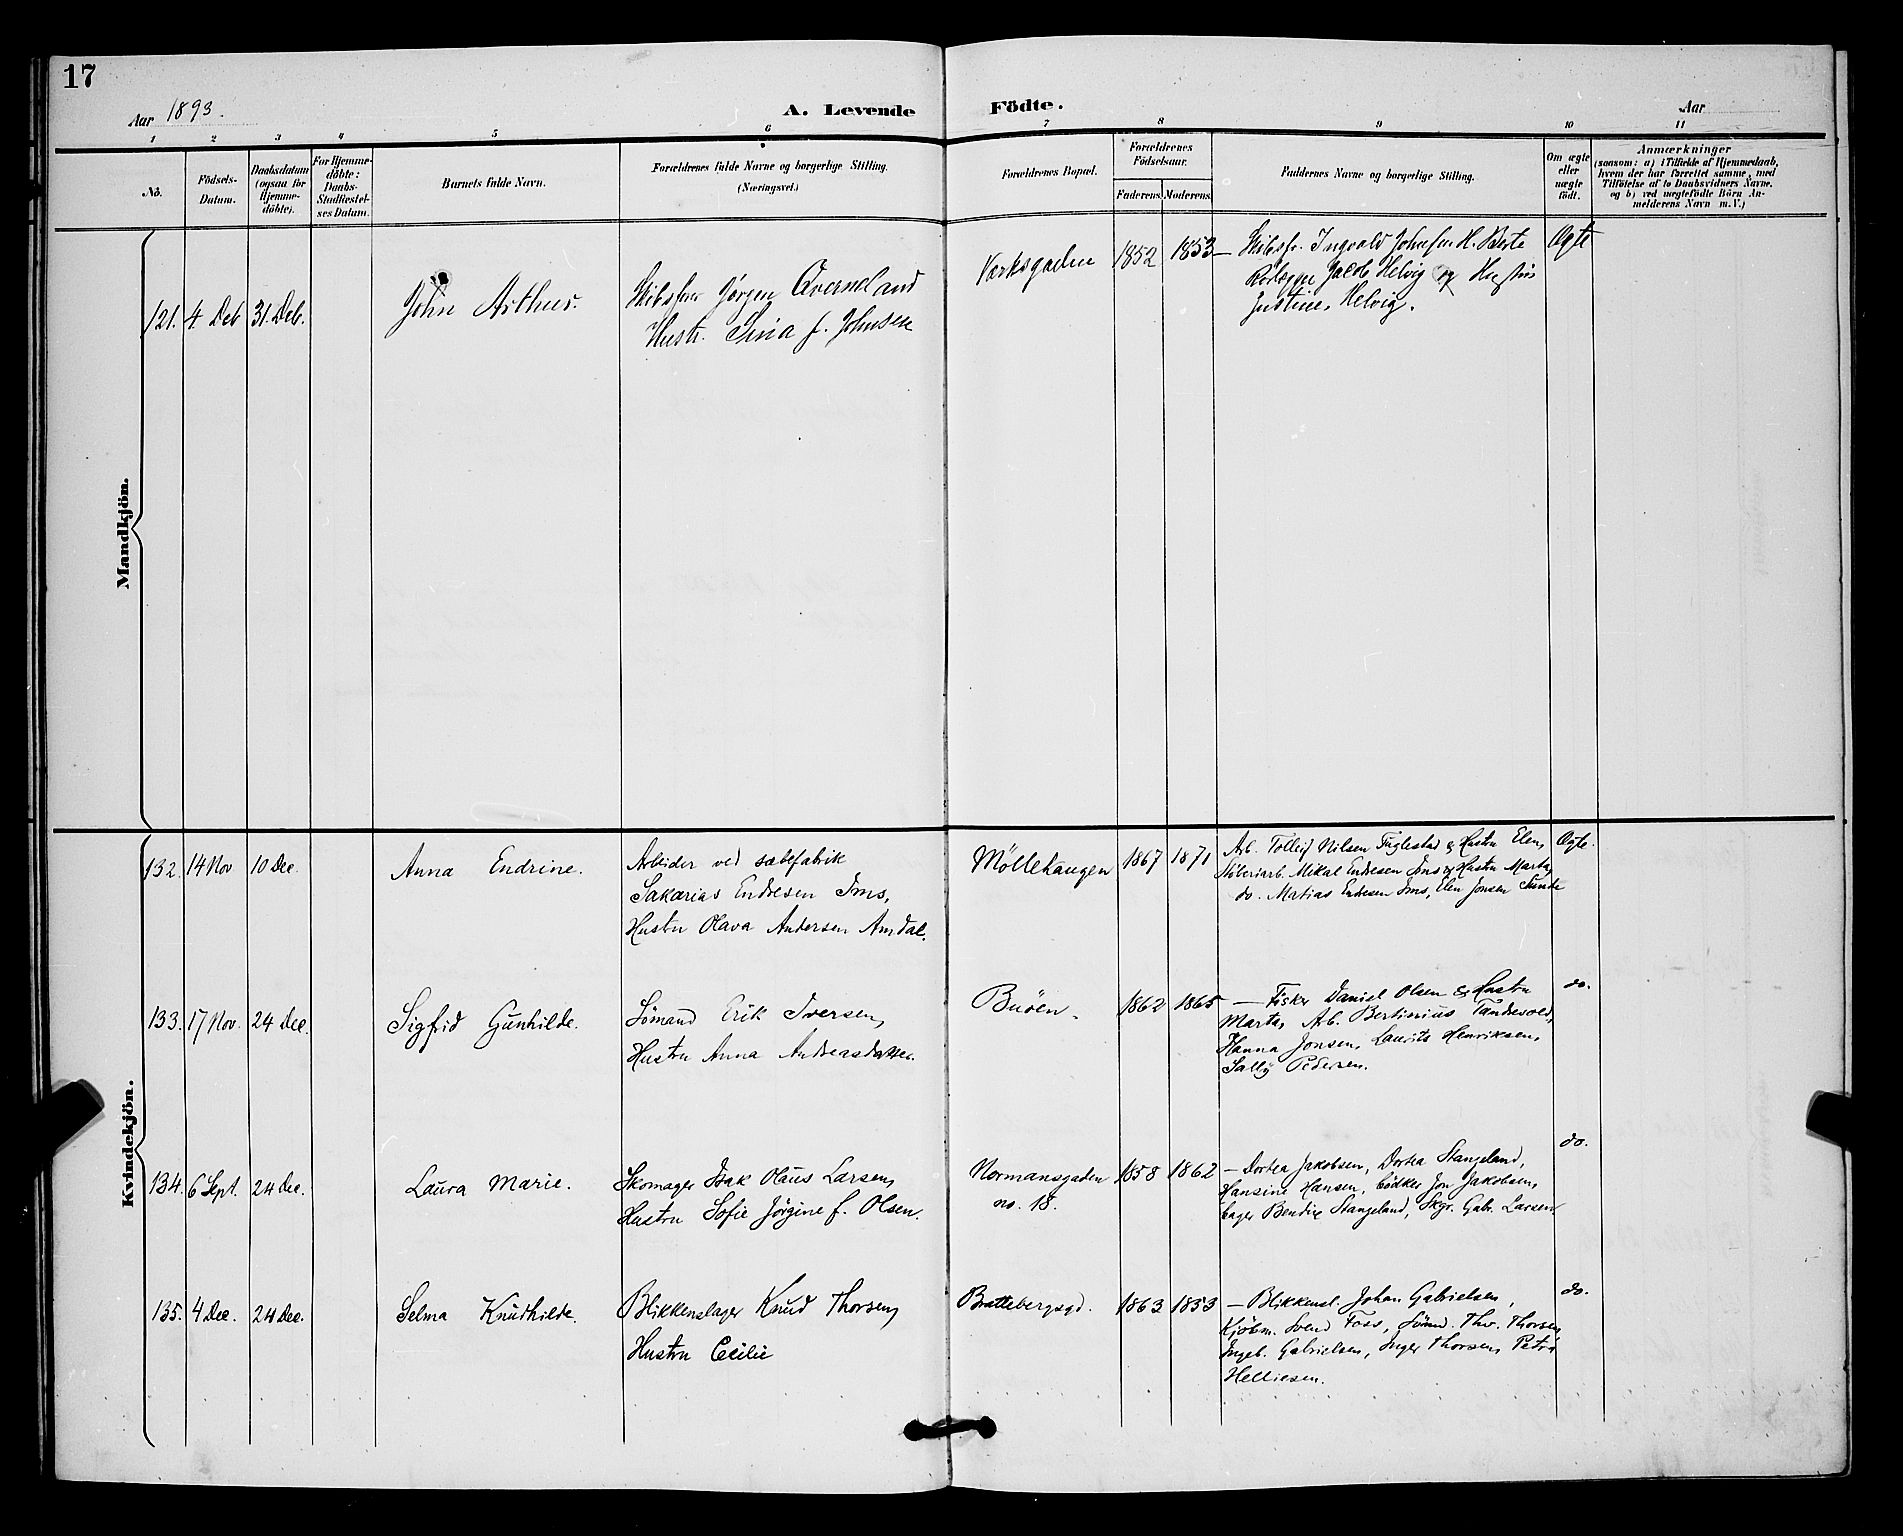 17
Aar 1893.
A. Levende Födte.
Aar
1 2 3 4 5 6 7 8 9 10 11
No.
Födsels-
Datum.
Daabsdatum
(ogsaa for
Hjemme-
döbte).
For Hjemme-
döbte:
Daabs-
Stadfæstel-
ses Datum.
Barnets fulde Navn.
Forældrenes fulde Navne og borgerlige Stilling.
(Næringsvei.)
Forældrenes Bopæl.
Forældrenes
Födselsaar.
Faderens. Moderens.
Faddernes Navne og borgerlige Stilling.
Om ægte
eller
uægte
födt.
Anmærkninger
(saasom: a) i Tilfælde af Hjemmedaab,
hvem der har forrettet samme, med
Tilföielse af to Daabsvidners Navne,
og b) ved uægtefödte Börn An-
melderens Navn m.V.)
Mandkjön.
121. 4 Deb 31. Deb.
John Arthur.
Skibsfører Jørgen Qverneland
Hustr. Sina f. Johnsen
Værksgaden
1852 1853
— Skibsfr. Ingvald Johnsen H. Berte
Rørlægger Jacob Helvig og Hustru
Justine Helvig.
Ægte
Kvindekjön.
132. 14 Nov 10 Dec.
Anna Endrine.
Arbeider ved sæbefabrik
Sakarias Endresen Ims,
Hustru Olava Andersen Amdal.
Möllehaugen
1867 1871
Arb. Tolleif Nilsen Fuglestad & Hustru Elen,
Mikal Endresen Ims og Hustru Marta,
do. Matias Endresen Ims, Elen Jonsen Sunde
Ægte.
133. 17 Nov. 24 Dec.
Sigfrid Gunhilde.
Sömand Erik Iversen,
Hustru Anna Andreasdatter.
Buöen.
1862 1865
— Fisker Daniel Olsen & Hustru
Marta, Arb. Bertinius Tandrevold,
Hanna Jonsen, Laurits Henriksen,
Sally Pedersen.
do.
134. 6 Sept. 24 Dec.
Laura Marie.
Skomager Isak Olaus Larsen,
Hustru Sofie Jörgine f. Olsen.
Normansgaden
no. 18.
1858 1862
— Dortea Jakobsen, Dortea Stangeland,
Hansine Hansen, bödker Jon Jakobsen,
bager Bendix Stangeland, Skgr. Gabr. Larsen
do.
135. 4 Dec. 24 Dec.
Selma Knudhilde.
Blikkenslager Knud Thorsen,
Hustru Cecilie
Brattebergsgd.
1863 1853
— Blikkensl. Johan Gabrielsen,
Kjöbm. Svend Foss, Sömd. Thv. Thorsen,
Ingeb. Gabrielsen, Inger Thorsen, Petra
Helliesen.
do.